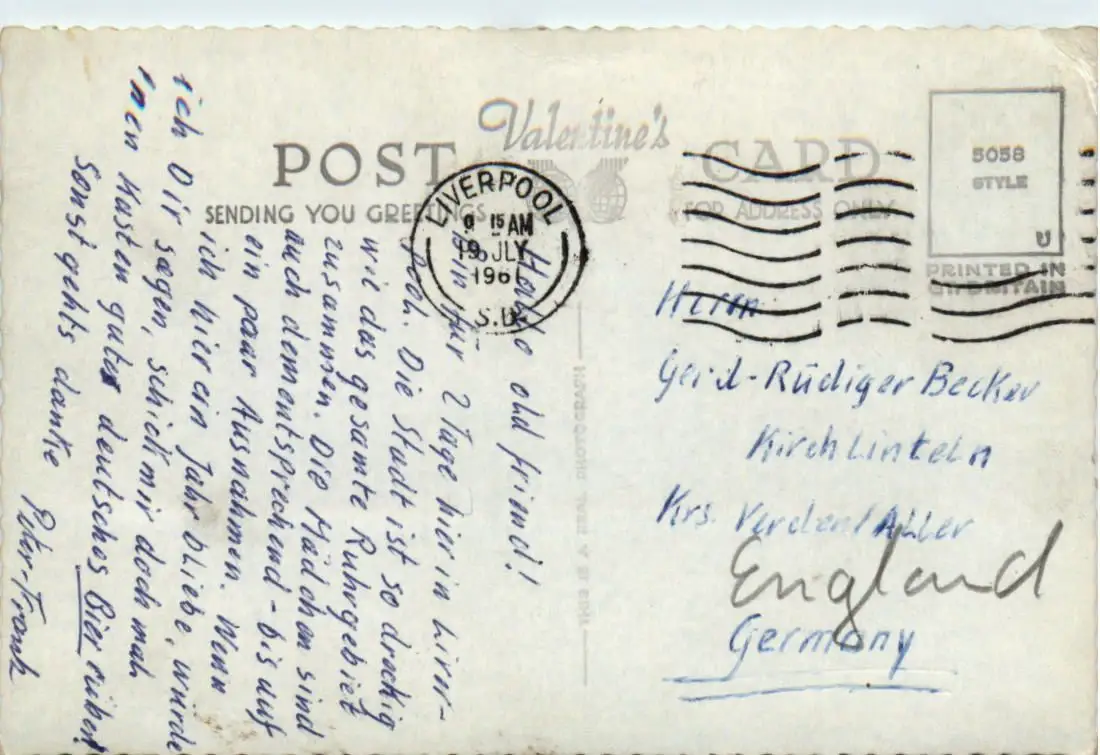 POST CARD
Valentine's
SENDING YOU GREETINGS
FOR ADDRESS ONLY
LIVERPOOL
9 15 AM
19 JLY
1961
5058
STYLE
U
PRINTED IN
GT. BRITAIN
THIS IS A REAL PHOTOGRAPH
Hallo old friend!
Bin für 2 Tage hier in Liver-
pool. Die Stadt ist so dreckig
wie das gesamte Ruhrgebiet
zusammen. Die Mädchen sind
auch dementsprechend - bis auf
ein paar Ausnahmen. Wenn
ich hier ein Jahr bliebe, würde
ich Dir sagen, schick mir doch mal
nen Kasten gutes deutsches Bier rüber!
Sonst gehts danke
Peter-Frank
Herrn
Gerd-Rüdiger Becker
Kirchlinteln
Krs. Verden/Aller
England
Germany